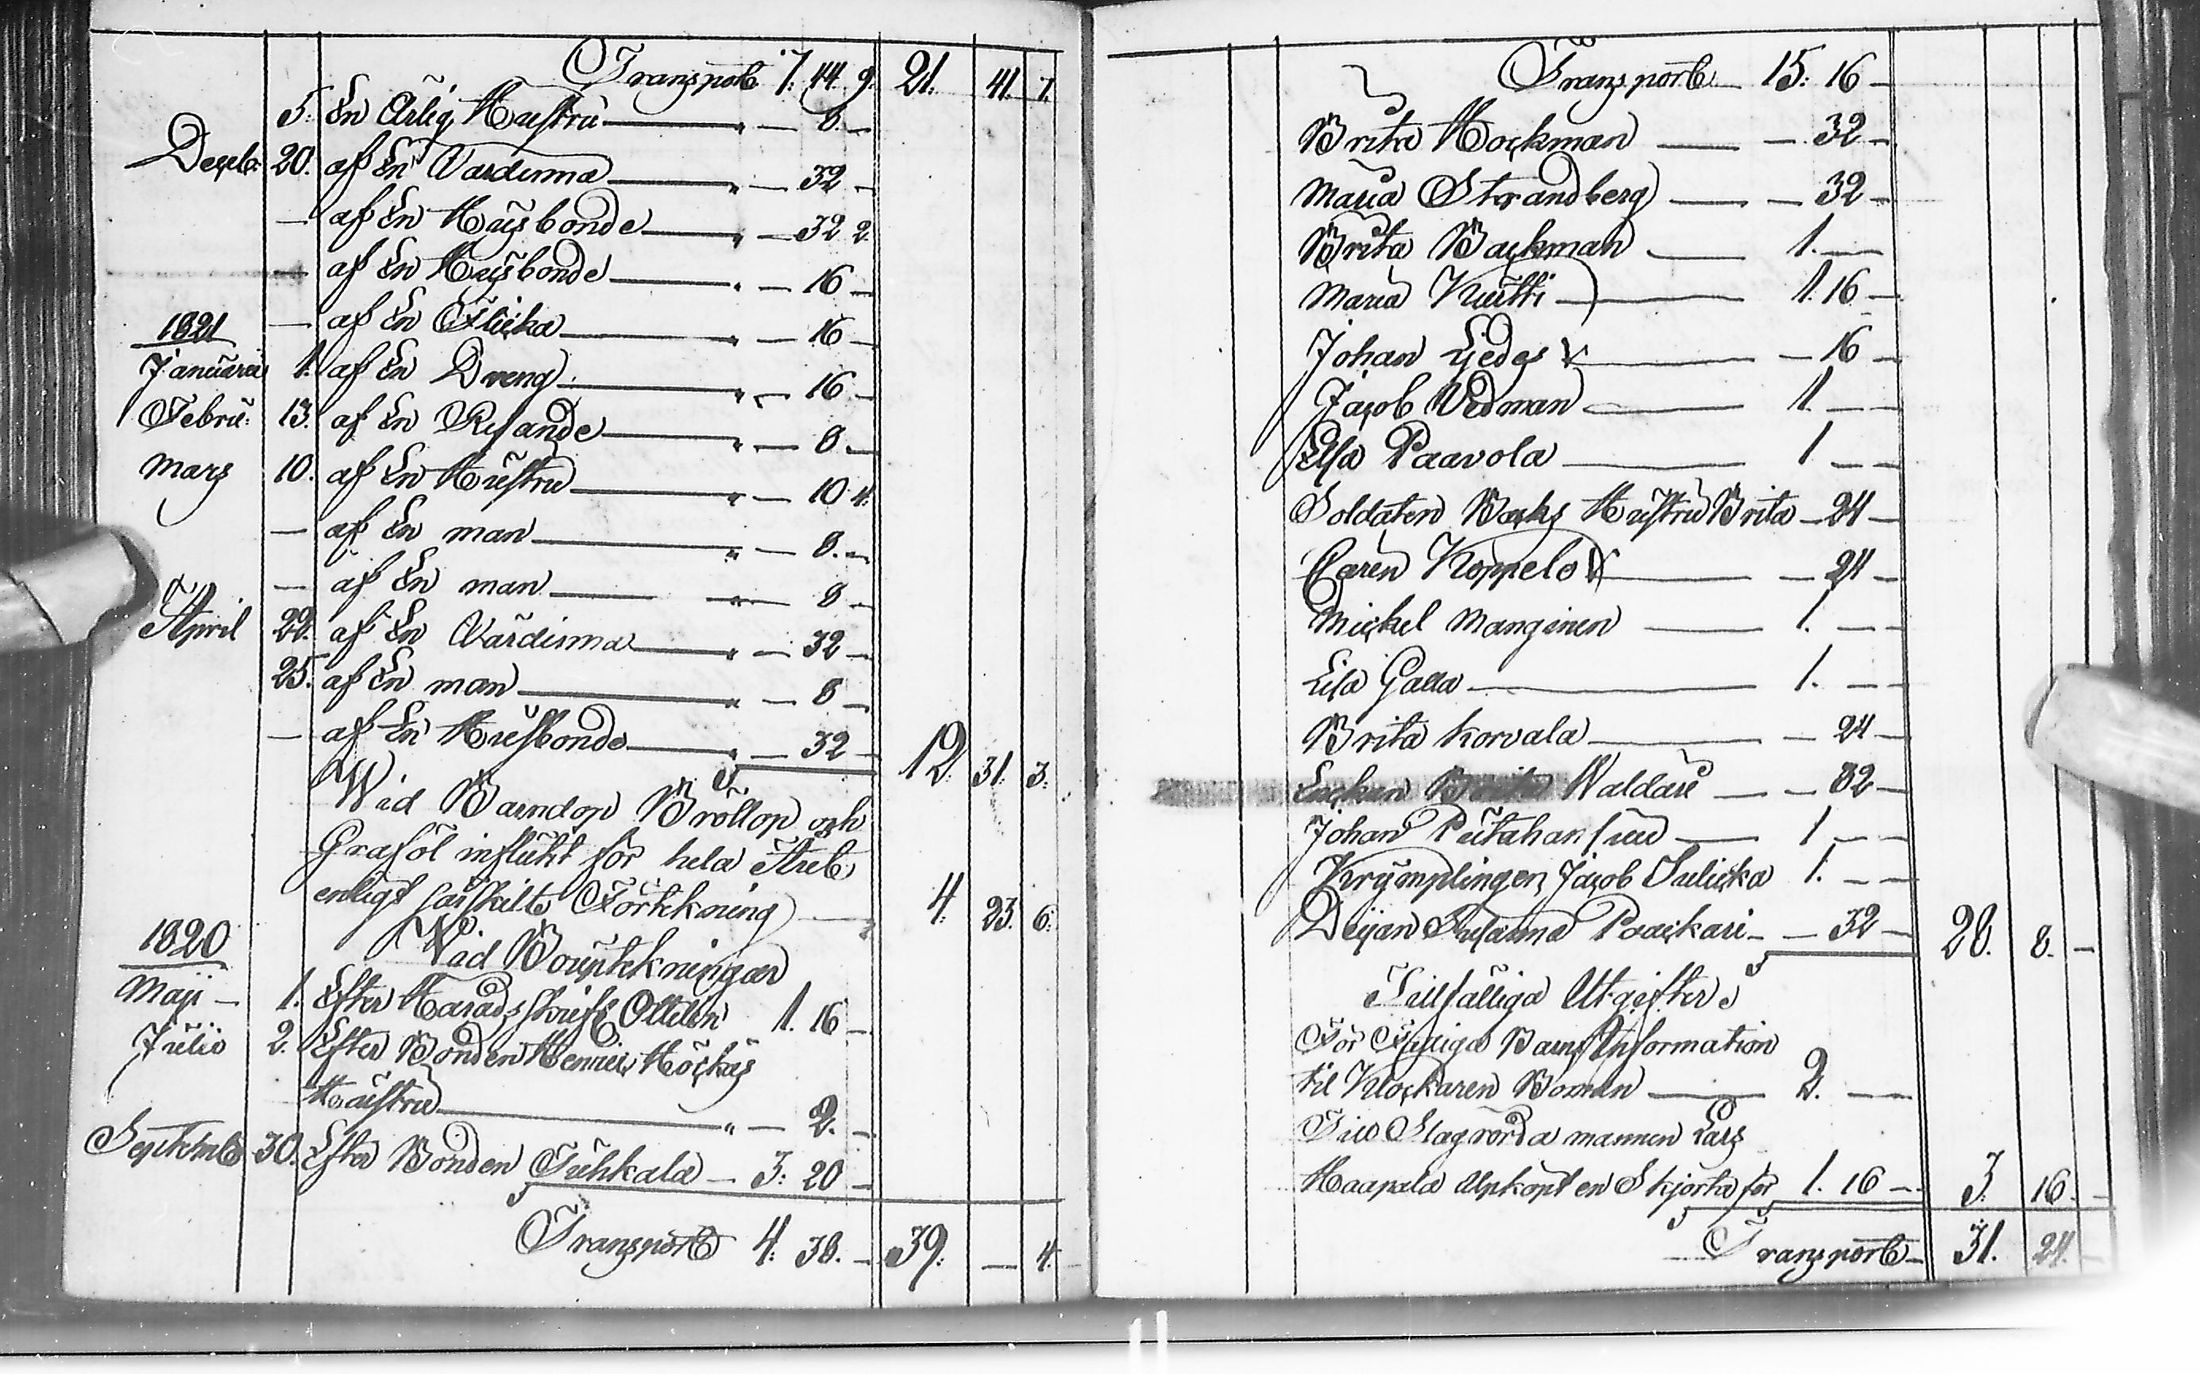 Transport 7. 44. 9. 21. 41. 7.
5. En Ärlig Hustru — 8. —
Decb: 20. af En Värdinna — 32 —
— af En Husbonde — 32 2.
— af En Husbonde — 16 —
— af En Flicka — 16 —
1821
Januarii 1. af En Dreng — 16 —
Febru: 13. af En Resande — 8. —
Mars 10. af En Hustru — 10 4.
— af En man — 8. —
— af En man — 8 —
April 22. af En Värdinna — 32 —
25. af En man — 8 —
— af En Husbonde — 32 — 12. 31. 3.
Wid Barndop Bröllop och
Graföl influtit för hela året
enligt särskilt Förtekning — 4. 23. 6.
Wid Bouptekningar
1820
Maji — 1. Efter Häradsskrifv. 1. 16 —
Julii 2. Efter Bonden Henric Höckäs
Hustru — 2. —
Septemb 30. Efter Bonden Tuhkala — 3: 20 —
Transport 4. 38. — 39. — 4.
Transport — 15: 16 —
Brita Hockman — 32 —
Maria Strandberg — 32 —
Brita Backman — 1. —
Maria Kutti — 1. 16 —
Johan Liedes — 16 —
Jacob Vedman — 1. — —
Elsa Paavola — 1 — —
Soldaten Backs Hustru Brita — 24 —
Caren Koppelo — 24 —
Mickel Manginen — 1. — —
Lisa Galla — 1. — —
Brita Korvala — 24 —
Enckan Waldari — 32 —
Johan — 1 — —
Krymplingen Jacob Juliska 1. — —
Pigan Susanna Paackari — 32 — 28. 8. —
Tillfälliga Utgifter
För Fattiga Barns Information
til Klockaren Boman — 2. —
Till Slagrörda mannen Lars
Haapala Upköpt en Skjorta för 1. 16 — 3. 16. —
Transport — 31. 24. —